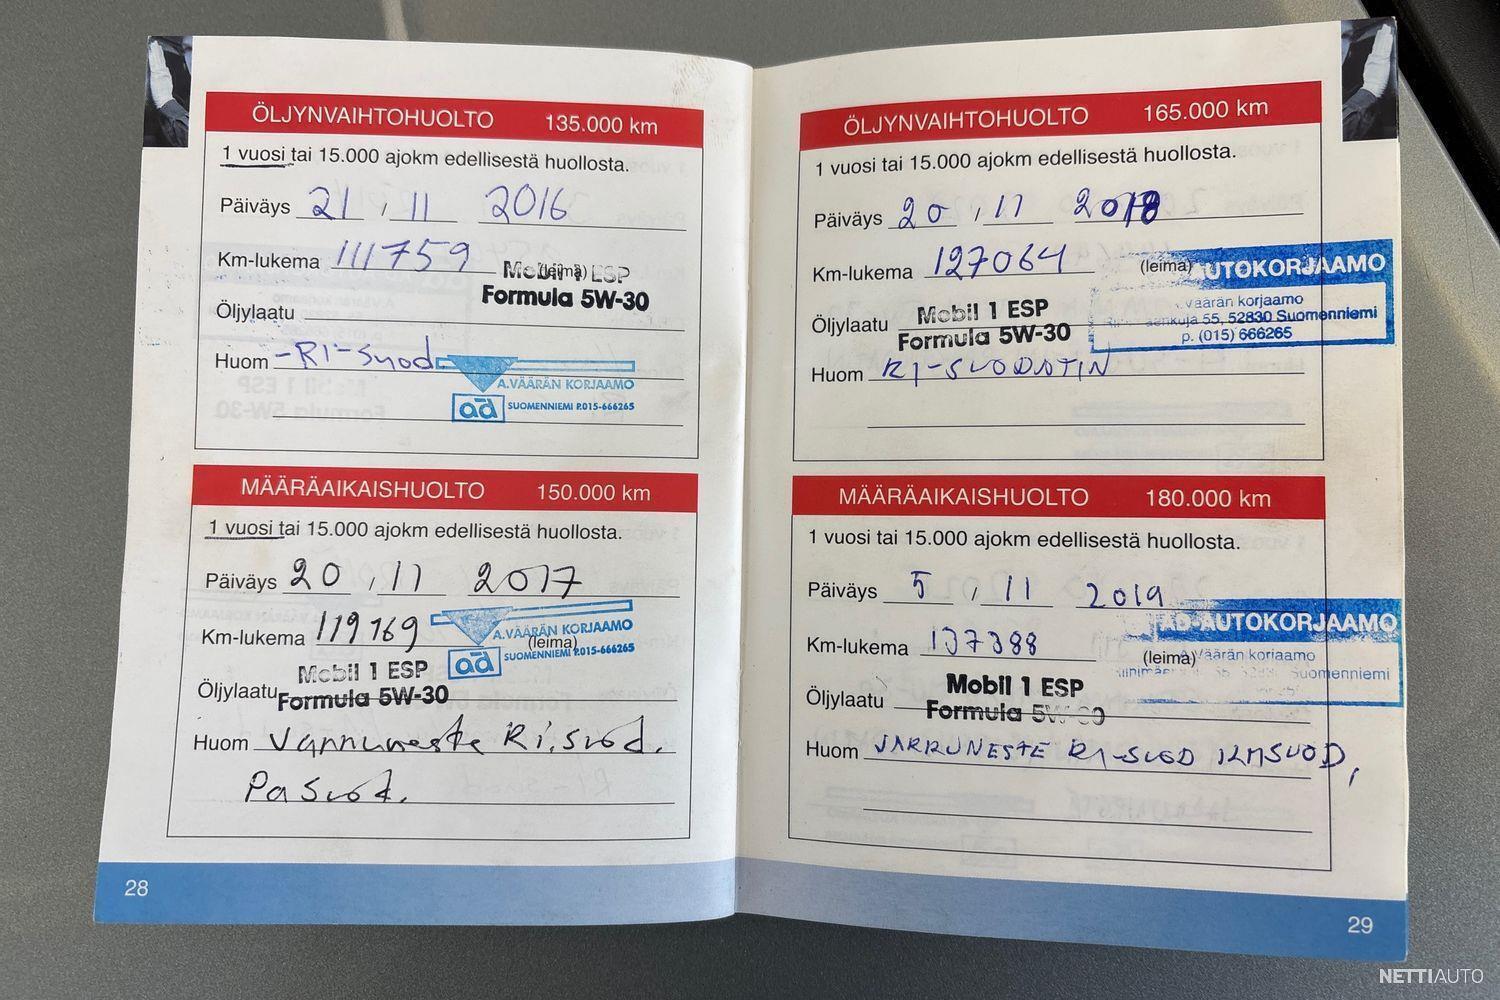 ÖLJYNVAIHTOHUOLTO 135.000 km
1 vuosi tai 15.000 ajokm edellisestä huollosta.
Päiväys 21 , 11 2016
Km-lukema 111759 (leima)
Mobil 1 ESP
Formula 5W-30
Öljylaatu
Huom -RI-Suod.
A.VÄÄRÄN KORJAAMO
ad SUOMENNIEMI P.015-666265
MÄÄRÄAIKAISHUOLTO 150.000 km
1 vuosi tai 15.000 ajokm edellisestä huollosta.
Päiväys 20 , 11 2017
Km-lukema 119169 (leima)
A.VÄÄRÄN KORJAAMO
ad SUOMENNIEMI P.015-666265
Mobil 1 ESP
Öljylaatu Formula 5W-30
Huom Ri.suod.
Pa Suod.
28
ÖLJYNVAIHTOHUOLTO 165.000 km
1 vuosi tai 15.000 ajokm edellisestä huollosta.
Päiväys 20 , 11 2018
Km-lukema 127064 (leima)
AUTOKORJAAMO
Väärän korjaamo
55, 52830 Suomenniemi
p. (015) 666265
Mobil 1 ESP
Öljylaatu Formula 5W-30
Huom RI-SUODATIN
MÄÄRÄAIKAISHUOLTO 180.000 km
1 vuosi tai 15.000 ajokm edellisestä huollosta.
Päiväys 5 , 11 2019
AD-AUTOKORJAAMO
Km-lukema 137388 (leima)
Väärän korjaamo
Suomenniemi
Mobil 1 ESP
Öljylaatu Formula 5W-30
Huom JARRUNESTE RI-SUOD ILMSUOD,
29
NETTIAUTO